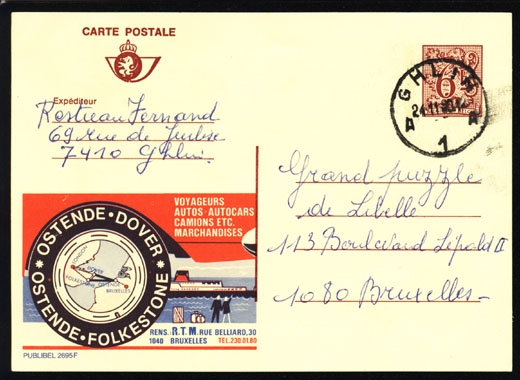 CARTE POSTALE
Expéditeur
Restieau Fernand
69 rue de
7410 Ghlin
GHLIN
A A
1
6
Grand puzzle
de Libelle
113 Boulevard Léopold II
1080 Bruxelles
VOYAGEURS
AUTOS·AUTOCARS
CAMIONS ETC.
MARCHANDISES
OSTENDE·DOVER
OSTENDE·FOLKESTONE
LONDON
DOVER
FOLKESTONE OSTENDE
BRUXELLES
RENS.: R.T.M. RUE BELLIARD, 30
1040 BRUXELLES TEL. 230.01.80
PUBLIBEL 2695F